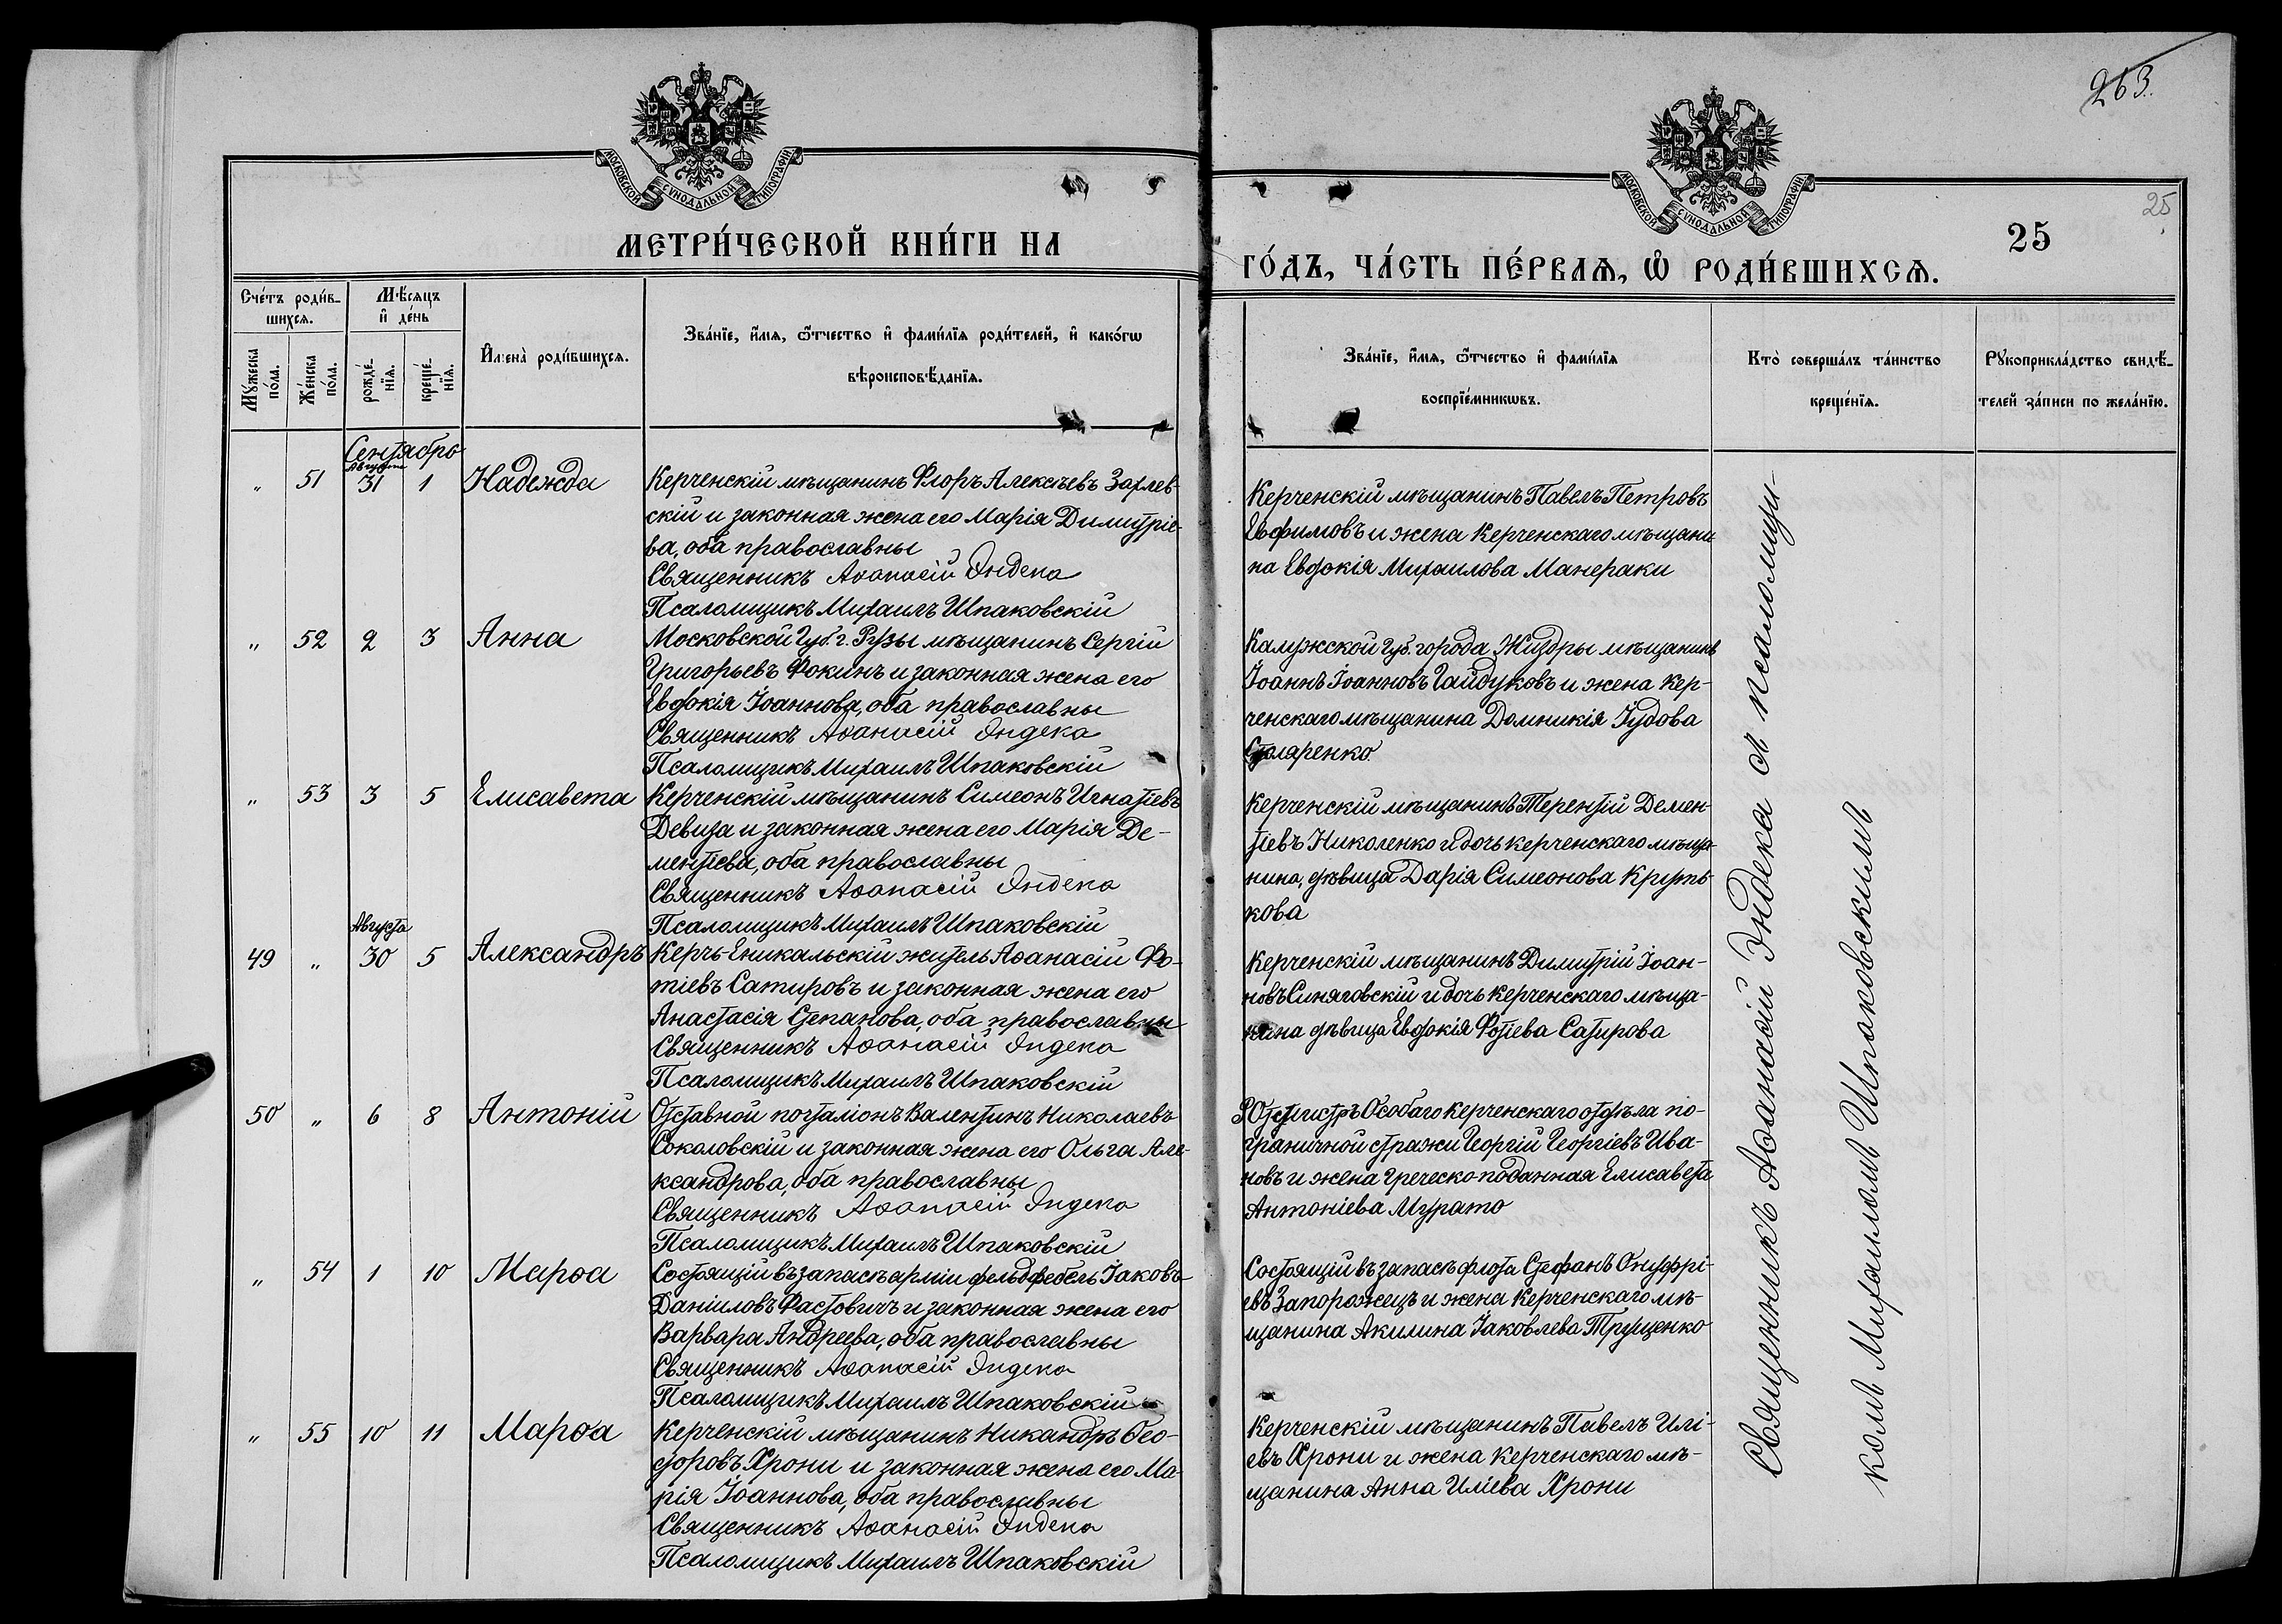 263.
25
МОСКОВСКОЙ СѴНОДАЛЬНОЙ ТИПОГРАФІИ
МОСКОВСКОЙ СѴНОДАЛЬНОЙ ТИПОГРАФІИ
МЕТРИ́ЧЕСКОЙ КНИ́ГИ НА
ГО́ДЪ, ЧА́СТЬ ПЕ́РВАѦ, Ѡ҆ РОДИ́ВШИХСѦ.
25
Сче́тъ роди́в-
шихсѧ.
Му́жеска по́ла.
Же́нска по́ла.
Мѣ́сѧцъ
и҆ де́нь
рожде́-нїѧ.
креще́-нїѧ.
И҆мена̀ роди́вшихсѧ.
Зва́нїе, и҆́мѧ, ѻ҆́тчество и҆ фами́лїѧ роди́телей, и҆ како́гѡ
вѣроисповѣ́данїѧ.
Зва́нїе, и҆́мѧ, ѻ҆́тчество и҆ фами́лїѧ
воспрїе́мникѡвъ.
Кто̀ соверша́лъ та́инство
креще́нїѧ.
Рꙋкоприкла́дство свидѣ́-
телей за́писи по жела́нїю.
Сентябрь
Августа
" 51 31 1 Надежда
Керченскій мѣщанинъ Флоръ Алексѣевъ Зарлев-
скій и законная жена его Марія Димитріе-
ва, оба православны
Священникъ Аѳанасій Эндека
Псаломщикъ Михаилъ Шпаковскій
Керченскій мѣщанинъ Павелъ Петровъ
Евфимовъ и жена Керченскаго мѣщани-
на Евдокія Михаилова Манераки
" 52 2 3 Анна
Московской Губ. г. Рузы мѣщанинъ Сергій
Григорьевъ Фокинъ и законная жена его
Евдокія Іоаннова, оба православны
Священникъ Аѳанасій Эндека
Псаломщикъ Михаилъ Шпаковскій
Калужской Губ. города Жиздры мѣщанинъ
Іоаннъ Іоанновъ Гайдуковъ и жена Кер-
ченскаго мѣщанина Домникія Іудова
Столяренко.
" 53 3 5 Елисавета
Керченскій мѣщанинъ Симеонъ Игнатіевъ
Девиза и законная жена его Марія Де-
ментіева, оба православны
Священникъ Аѳанасій Эндека
Псаломщикъ Михаилъ Шпаковскій
Керченскій мѣщанинъ Терентій Демен-
тіевъ Николенко и дочь керченскаго мѣща-
нина, дѣвица Дарія Симеонова Круть-
кова
Августа
49 " 30 5 Александръ
Керчь-Еникальскій житель Аѳанасій Фо-
тіевъ Сатировъ и законная жена его
Анастасія Степанова, оба православны
Священникъ Аѳанасій Эндека
Псаломщикъ Михаилъ Шпаковскій
Керченскій мѣщанинъ Димитрій Іоан-
новъ Синяговскій и дочь керченскаго мѣща-
нина дѣвица Евдокія Фотіева Сатирова
50 " 6 8 Антоній
Отставной почталіонъ Валентинъ Николаевъ
Соколовскій и законная жена его Ольга Але-
ксандрова, оба православны
Священникъ Аѳанасій Эндека
Псаломщикъ Михаилъ Шпаковскій
Ротмистръ Особаго Керченскаго отдѣла по-
граничной стражи Георгій Георгіевъ Ива-
новъ и жена греческо-подданная Елисавета
Антоніева Мурато
" 54 1 10 Марѳа
Состоящій въ запасѣ арміи фельдфебель Іаковъ
Даніиловъ Фастовичъ и законная жена его
Варвара Андреева, оба православны
Священникъ Аѳанасій Эндека
Псаломщикъ Михаилъ Шпаковскій
Состоящій въ запасѣ флота Стефанъ Онуфрі-
евъ Запорожецъ и жена Керченскаго мѣ-
щанина Акилина Іаковлева Трущенко
" 55 10 11 Марѳа
Керченскій мѣщанинъ Никандръ Ѳео-
доровъ Хрони и законная жена его Ма-
рія Іоаннова, оба православны
Священникъ Аѳанасій Эндека
Псаломщикъ Михаилъ Шпаковскій
Керченскій мѣщанинъ Павелъ Илі-
евъ Хрони и жена Керченскаго мѣ-
щанина Анна Иліева Хрони
Священникъ Аѳанасій Эндека съ псаломщи-
комъ Михаиломъ Шпаковскимъ